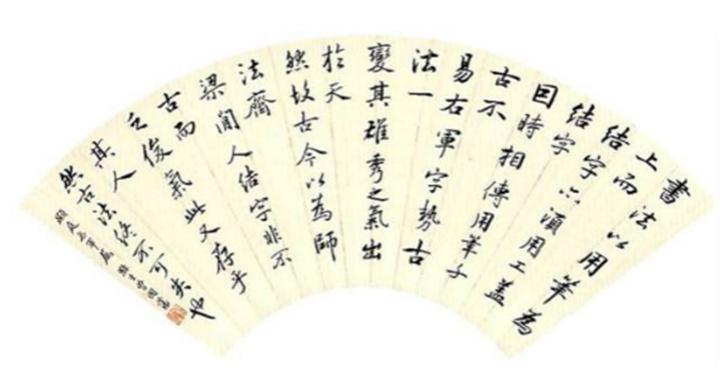 書法以用筆為
上而
結字亦須用工蓋
結字
因時相傳用筆千
古不
易右軍字勢古
法一
變其雄秀之氣出
於天
然故古今以為師
法齊
梁間人結字非不
古而
乏俊氣此又存乎
其人
然古法終不可失也